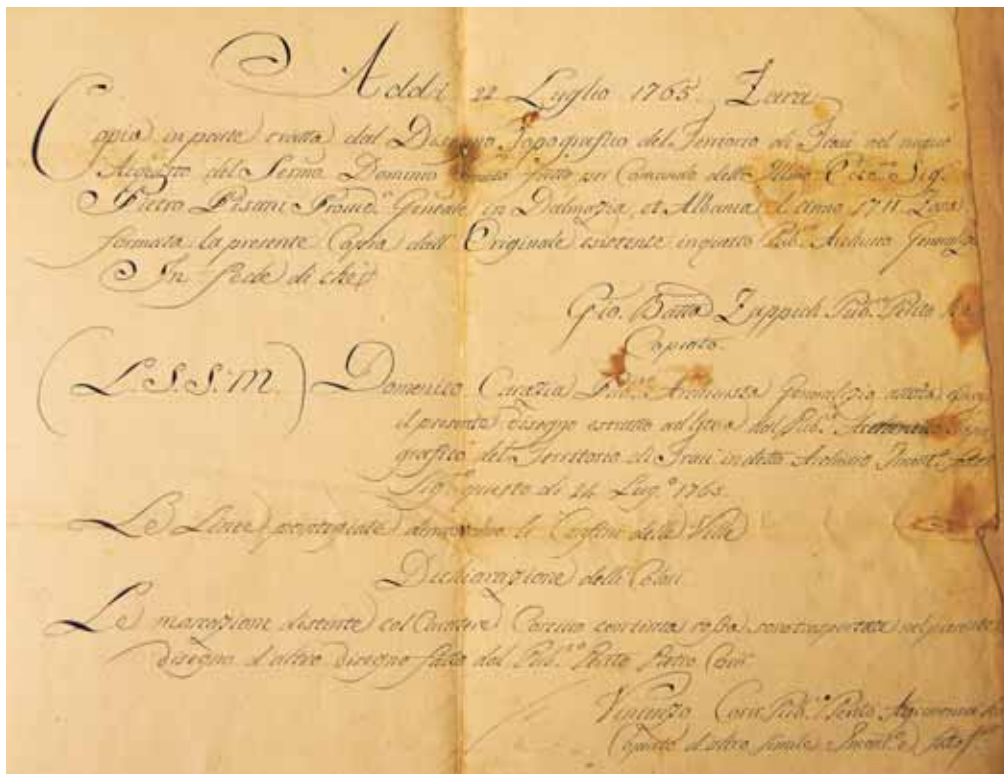 Addi 22 Luglio 1765 Zara
Copia in parte tratta dal Disegno Topografico del Territorio di Traù nel nuovo
Acquisto del Sermo Dominio fatto per Comando dell Illmo Sig.
Pietro Pisani Proved.r Generale in Dalmazia, et Albania l'anno 1711. Zara
formata la presente Copia dall' Originale esistente in questo Pub.co Archivio
In fede di che
Gio. Batta Zappich Pub.co Perito
Copiato.
(L. S. S. M.) Domenico Pub.co Archivista Generalizio
il presente disegno estratto dal Pub.co
grafico del Territorio di Traù in detto Archivio
questo di 24 Lug.o 1765.
Le Linee le Confini delle Ville
Dichiarazione delli Colori
Le marcazioni distinte col Carattere Corsivo con tinta rossa, sono trasportate nel presente
disegno d'altro disegno fatto dal Pub.co Perito Pietro
Vincenzo Pub.co Perito
Copiato d'altro simile